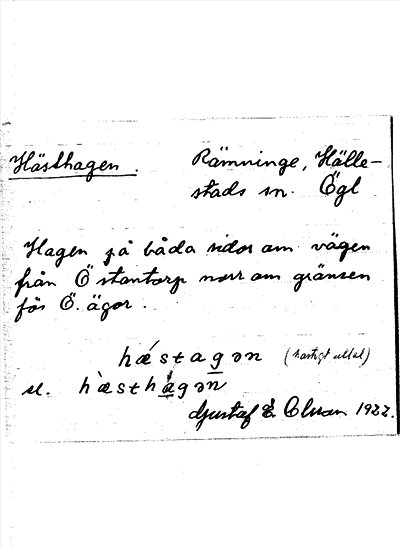 Hästhagen. Rämninge, Hälle-
stads sn. Ögl
Hagen på båda sidor om vägen
från Östantorp norr om gränsen
för Ö. ägor.
hǽstagən (hastigt uttal)
el. hæ̀sthágən
Gustaf E. Olsson 1922.